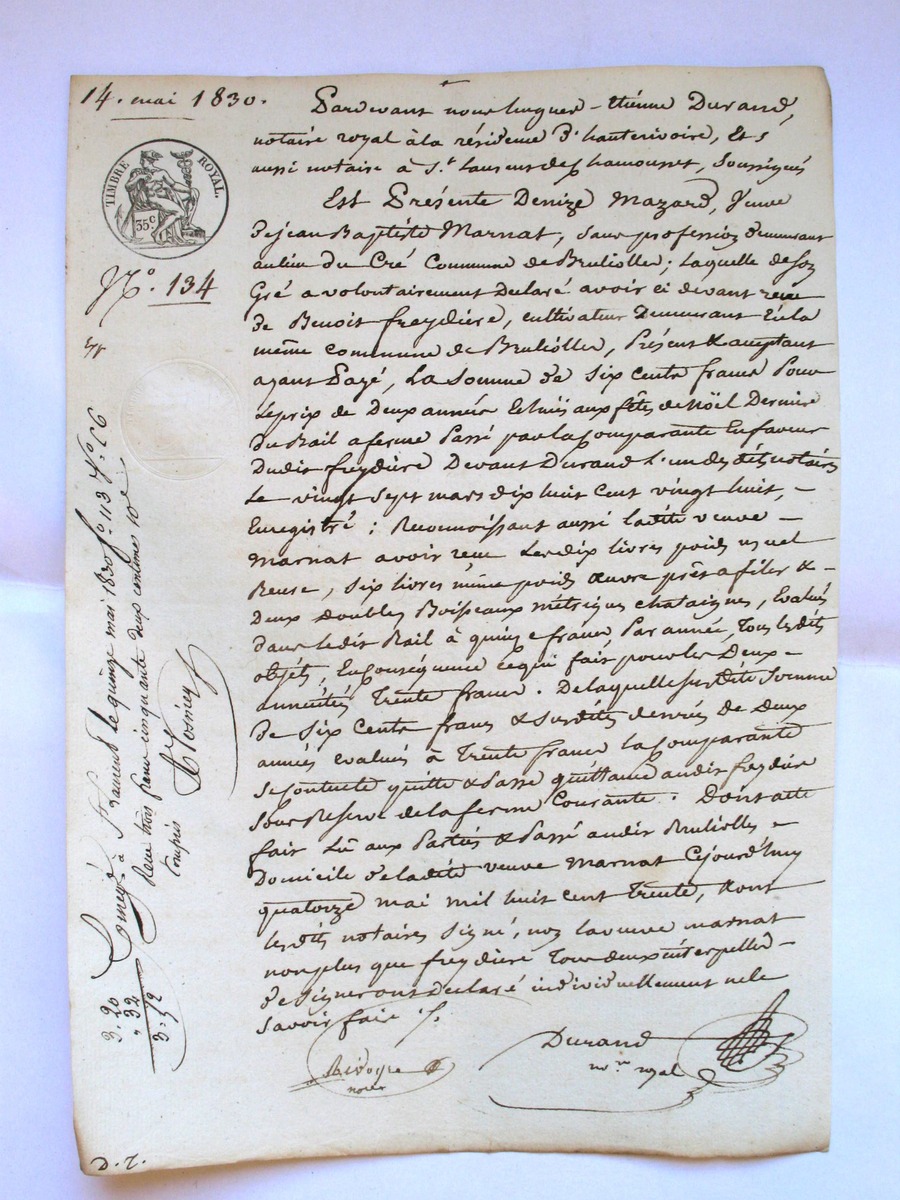 14. mai 1830.
TIMBRE ROYAL.
35 C
N.º 134
Pardevant nous hugues-étienne Durand,
notaire royal à la résidence d'hauterivoire, Et
aussi notaire à S.t Laurent de Chamousset, Soussignés
Est Présente Denize Mazard, Veuve
de jean Baptiste Marnat, sans profession demeurant
au lieu du Cré Commune de Brulioller; laquelle de son
Gré a volontairement Declaré avoir ci devant reçu
de Benoit freydière, cultivateur Demeurant En la
même commune de Brulioller, Présent & acceptant
ayant Payé, La Somme de Six Cents francs Pour
le prix de Deux années Echues aux fêtes de Noël Dernier
du Bail a ferme Passé par la Comparante En faveur
Dudit freydière Devant Durand L'un des dits notaires
Le vingt Sept mars dix huit cent vingt huit, -
Enregistré : Reconnoissant aussi ladite veuve -
marnat avoir reçu Les dix livres poids usuel
Beure, Six livres même poids œuvre prêt a filer & -
Deux Doubles Boisseaux métriques chataignes, Evalués
dans ledit Bail à quinze francs Par année, Tous lesdits
objets, En Conséquence ce qui fait pour les Deux -
annuités Trente francs. De laquelle susdite Somme
de Six Cents francs & Susdites denrées de Deux
années évalués à Trente francs la Comparante
se contente quitte & Passe quittance audit freydière
Sous Reserve de la ferme Courante. Dont acte
fait Lû aux Parties & Passé audit Brulioller -
Domicile de ladite veuve Marnat Cejourd'huy
quatorze mai mil huit cent Trente, dont
lesdits notaires Signé, non la veuve marnat
non plus que freydière Tous deux interpellés -
de Signer ont declaré individuellement ne le
savoir faire ./.
Durand
no.re royal
notre
à S.t Laurent le quinze mai 1830 f.º 113 V.º C 6
Reçu trois francs cinquante deux centimes 10e
compris
3. 20
" 32
3. 52
D. T.